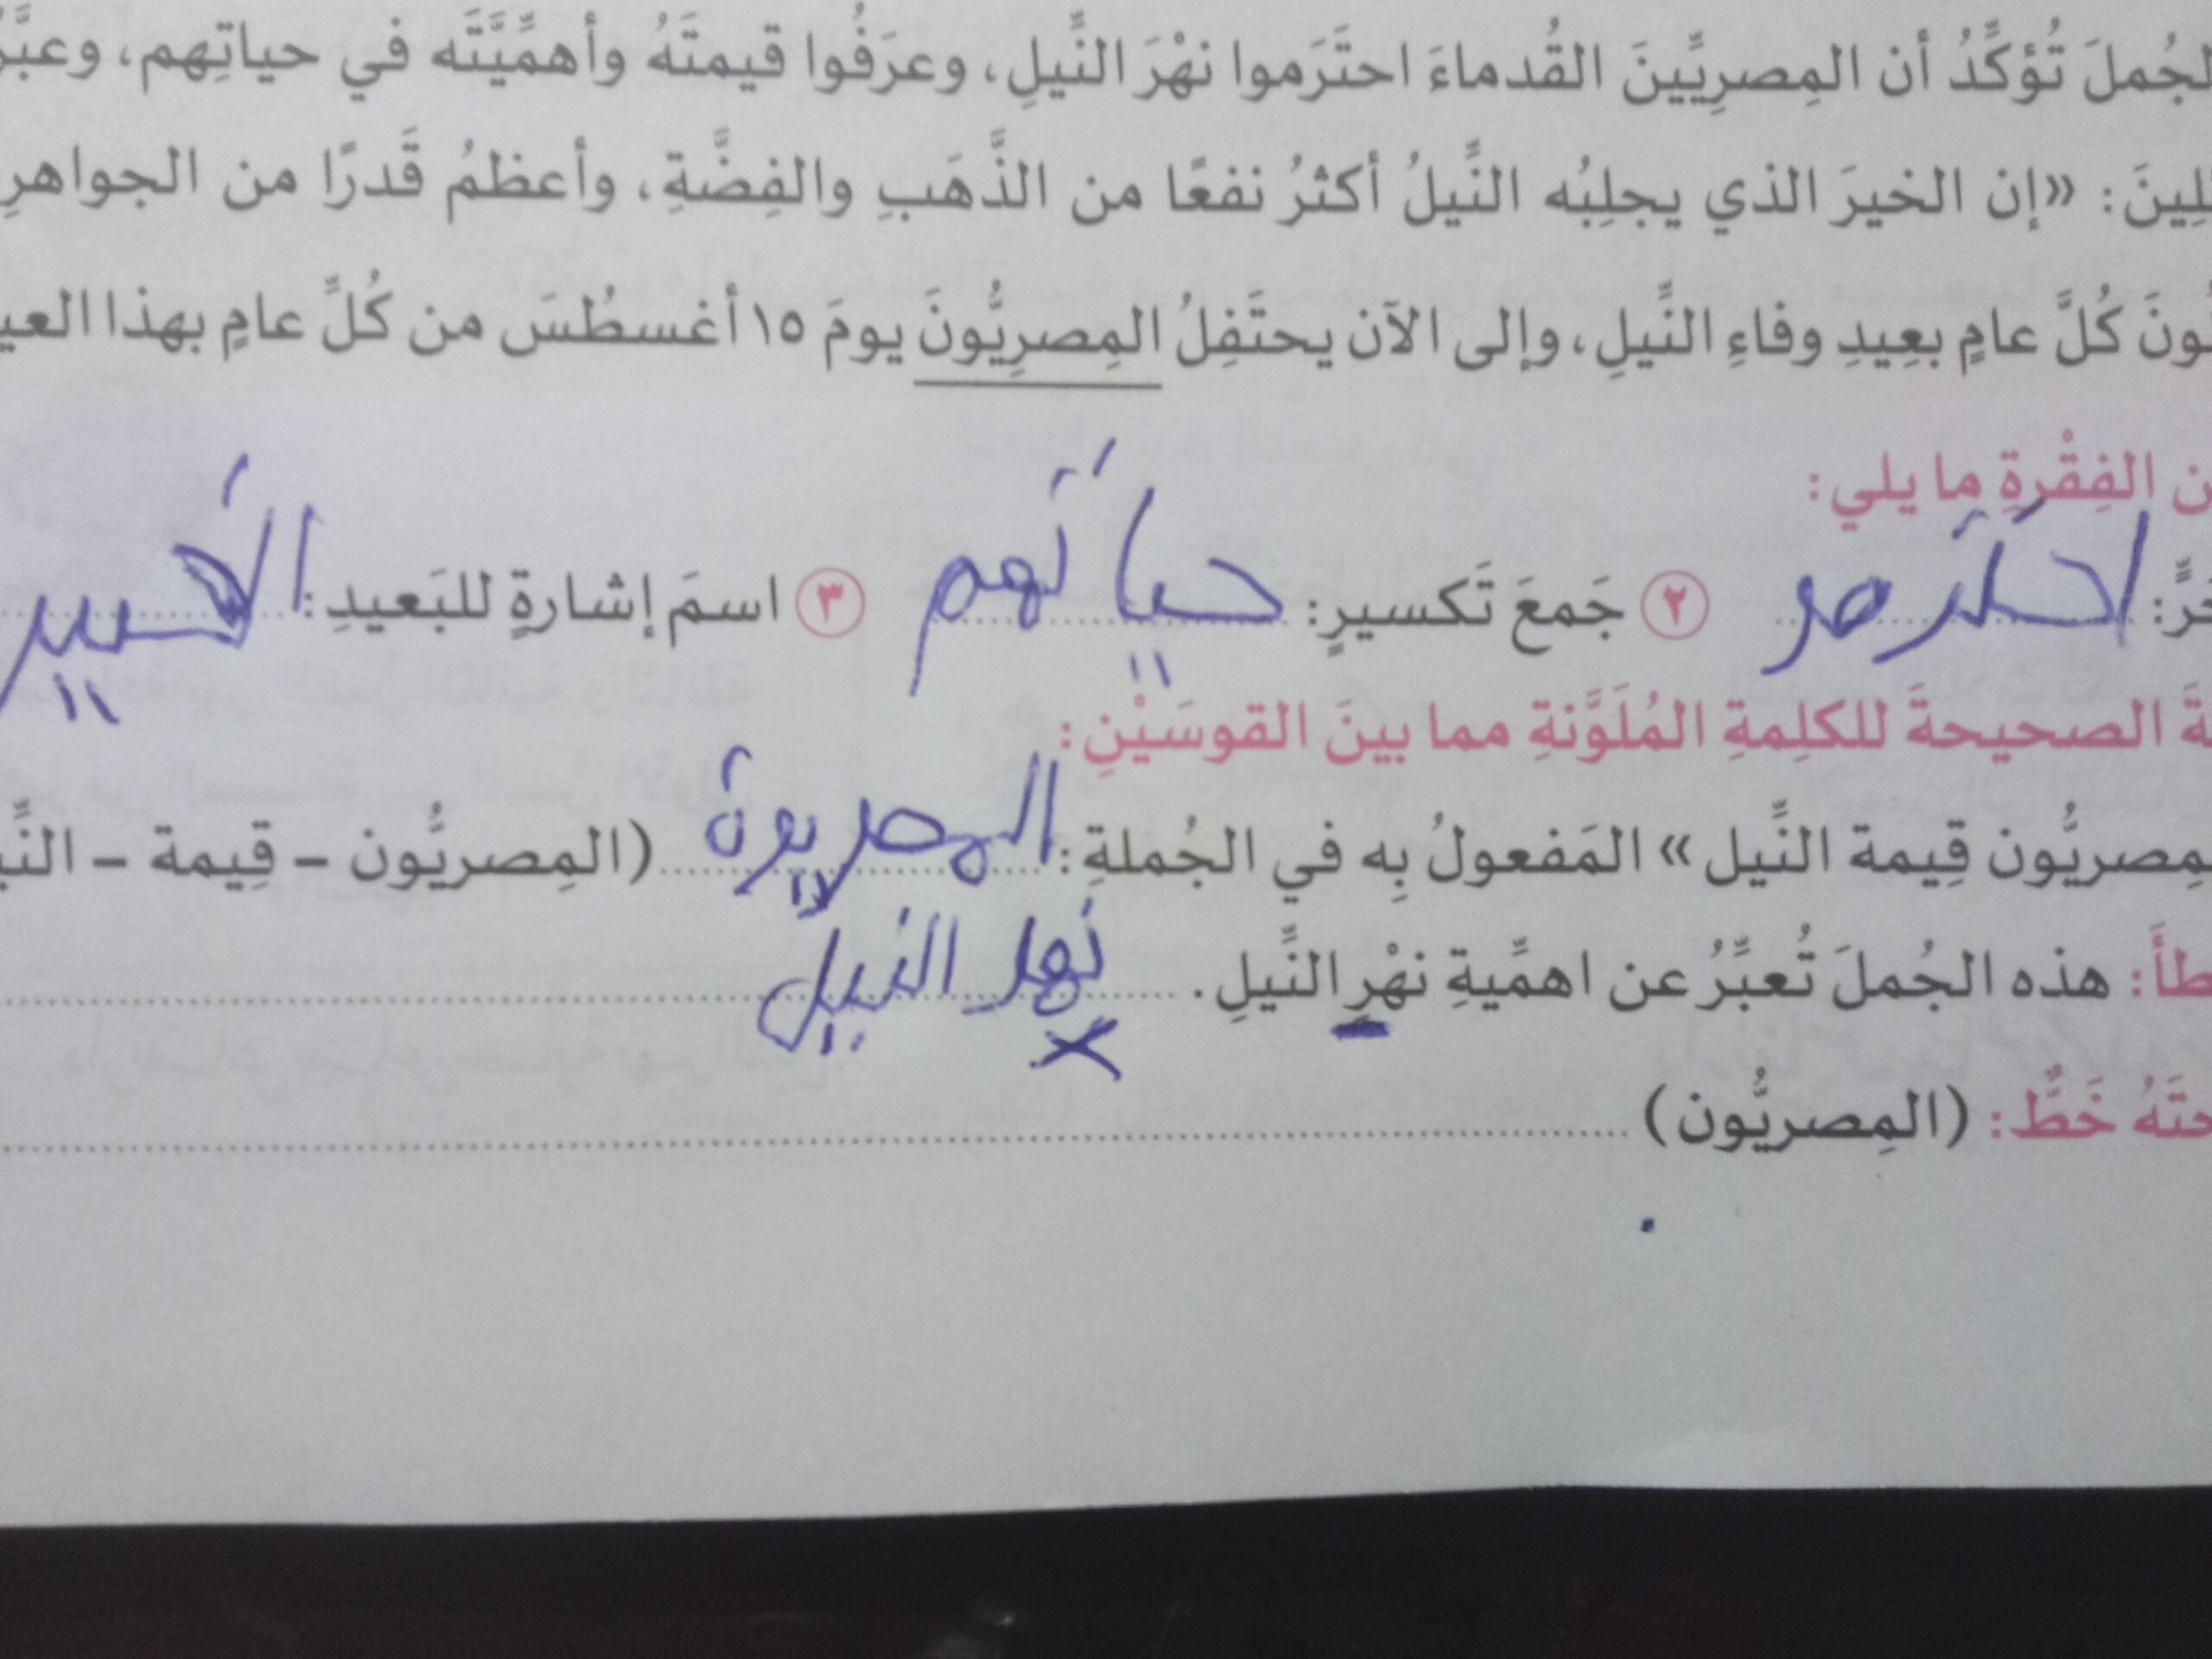 الجُملَ تُؤكِّدُ أن المِصرِيِّينَ القُدماءَ احتَرَموا نهْرَ النِّيلِ، وعرَفُوا قيمتَهُ وأهمِّيَّتَه في حياتِهم، وعبَّر
لِينَ: «إن الخيرَ الذي يجلِبُه النِّيلُ أكثرُ نفعًا من الذَّهَبِ والفِضَّةِ، وأعظمُ قَدرًا من الجواهرِ
ُونَ كُلَّ عامٍ بعِيدِ وفاءِ النِّيلِ، وإلى الآن يحتَفِلُ المِصرِيُّونَ يومَ ١٥ أغسطُسَ من كُلِّ عامٍ بهذا العي
ن الفِقْرةِ ما يلي:
رٍّ: احترمو ٢ جَمعَ تَكسيرٍ: حياتهم ٣ اسمَ إشارةٍ للبَعيدِ:
ةَ الصحيحةَ للكلِمةِ المُلَوَّنةِ مما بينَ القوسَيْنِ:
مِصريُّون قِيمة النِّيل» المَفعولُ بِه في الجُملةِ: المصريون (المِصريُّون – قِيمة – النِّي
طأَ: هذه الجُملَ تُعبِّرُ عن اهمِّيةِ نهْرِ النِّيلِ. نهر النيل
حتَهُ خَطٌّ: (المِصريُّون)